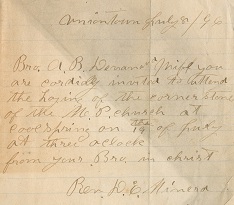 Uniontown July 8/96
Bro. A. B. you
are cordialy invited to attend
the of the corner stone
of the M. P. church at
coolspring on the 19 of July
at three oclock
from your Bro. in christ
Rev. E.